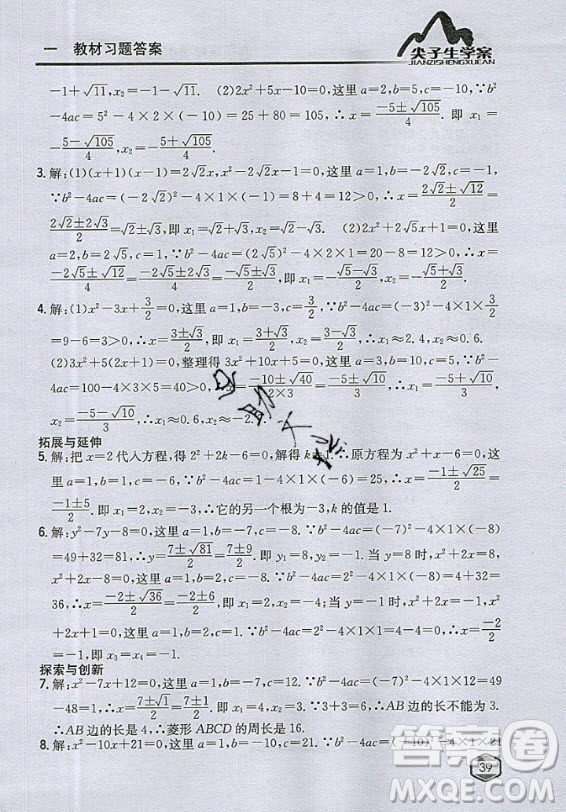 一 教材习题答案
尖子生学案
JIANZISHENGXUEAN
-1+√11, x₂=-1-√11. (2)2x²+5x-10=0, 这里 a=2, b=5, c=-10. ∵b²
-4ac=5²-4×2×(-10)=25+80=105, ∴x=(-5±√105)/4. 即 x₁=
-(5-√105)/4, x₂=-(5+√105)/4.
3. 解:(1)(x+1)(x-1)=2√2x, x²-2√2x-1=0, 这里 a=1, b=-2√2, c=-1,
∵b²-4ac=(-2√2)²-4×1×(-1)=8+4=12>0, ∴x=(2√2±√12)/2=
(2√2±2√3)/2, 即 x₁=√2+√3, x₂=√2-√3. (2)2x²+2√5x+1=0, 这里
a=2, b=2√5, c=1. ∵b²-4ac=(2√5)²-4×2×1=20-8=12>0, ∴x=
(-2√5±√12)/4=(-√5±√3)/2. 即 x₁=(-√5+√3)/2, x₂=(-√5-√3)/2.
4. 解:(1)x²-3x+3/2=0, 这里 a=1, b=-3, c=3/2. ∵b²-4ac=(-3)²-4×1×3/2
=9-6=3>0, ∴x=(3±√3)/2, 即 x₁=(3+√3)/2, x₂=(3-√3)/2, ∴x₁≈2.4, x₂≈0.6.
(2)3x²+5(2x+1)=0, 整理得 3x²+10x+5=0, 这里 a=3, b=10, c=5. ∵b²-
4ac=100-4×3×5=40>0, x=(-10±√40)/(2×3)=(-5±√10)/3, x₁=(-5+√10)/3,
x₂=(-5-√10)/3, ∴x₁≈-0.6, x₂≈-2.
拓展与延伸
5. 解:把 x=2 代入方程, 得 2²+2k-6=0, 解得 k=1. ∵原方程为 x²+x-6=0,
这里 a=1, b=1, c=-6. ∵b²-4ac=1²-4×1×(-6)=25, ∴x=(-1±√25)/2=
(-1±5)/2. 即 x₁=2, x₂=-3, ∴它的另一个根为-3, k 的值是 1.
6. 解:y²-7y-8=0, 这里 a=1, b=-7, c=-8. ∵b²-4ac=(-7)²-4×1×(-8)
=49+32=81, ∴y=(7±√81)/2=(7±9)/2. 即 y₁=8, y₂=-1. 当 y=8 时, x²+2x=
8, x²+2x-8=0, 这里 a=1, b=2, c=-8. ∵b²-4ac=2²-4×1×(-8)=4+32=
36, ∴x=(-2±√36)/2=(-2±6)/2, 即 x₁=2, x₂=-4; 当 y=-1 时, x²+2x=-1,
x²+2x+1=0, 这里 a=1, b=2, c=1. ∵b²-4ac=2²-4×1×1=0, ∴x=-2/2
=-1, 即 x₃=x₄=-1. ∴原方程的解为 x₁=2, x₂=-4, x₃=x₄=-1.
探索与创新
7. 解:x²-7x+12=0, 这里 a=1, b=-7, c=12. ∵b²-4ac=(-7)²-4×1×12=49
-48=1, ∴x=(7±√1)/2=(7±1)/2, 即 x₁=4, x₂=3. ∵AB 的长不能为 3.
∴AB 边的长是 4, ∴菱形 ABCD 的周长是 16.
8. 解:x²-10x+21=0, 这里 a=1, b=-10, c=21. ∵b²-4ac=(-10)²-4×1×21
39
答案圈
MXQE.COM